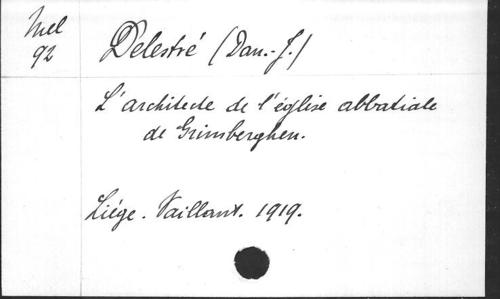 Mel
92
Delestré (Dan.-J.)
L'architecte de l'église abbatiale
de Grimberghen.
Liége. Vaillant. 1919.